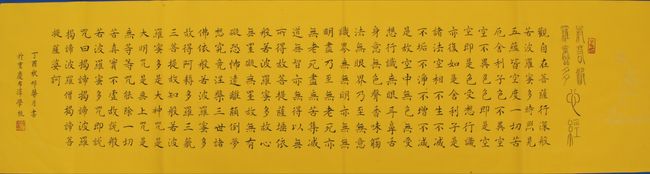 般若波
羅蜜多
心經
觀自在菩薩行深般
若波羅蜜多時照見
五蘊皆空度一切苦
厄舍利子色不異空
空不異色色即是空
空即是色受想行識
亦復如是舍利子是
諸法空相不生不滅
不垢不淨不增不減
是故空中無色無受
想行識無眼耳鼻舌
身意無色聲香味觸
法無眼界乃至無意
識界無無明亦無無
明盡乃至無老死亦
無老死盡無苦集滅
道無智亦無得以無
所得故菩提薩埵依
般若波羅蜜多故心
無罣礙無罣礙故無有
恐怖遠離顛倒夢
想究竟涅槃三世諸
佛依般若波羅蜜多
故得阿耨多羅三藐
三菩提故知般若波
羅蜜多是大神咒是
大明咒是無上咒是
無等等咒能除一切
苦真實不虛故說般
若波羅蜜多咒即說
咒曰揭諦揭諦波羅
揭諦波羅僧揭諦菩
提薩婆訶
丁酉秋月書
於重慶